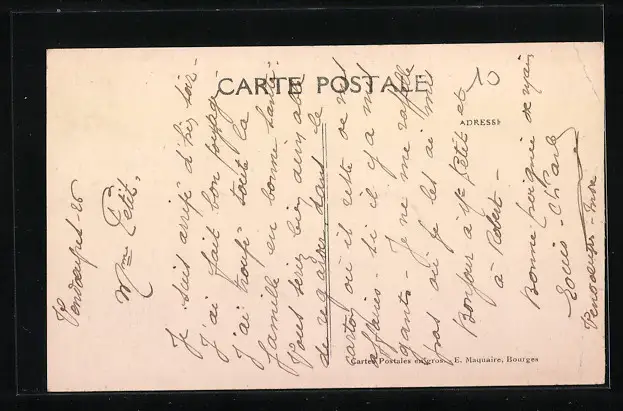 CARTE POSTALE
ADRESSE
10
Mme Petit,
Je suis arrivé d'hier soir -
J'ai fait bon voyage
J'ai trouvé toute la
famille en bonne santé.
Vous seriez bien aimable
de regarder dans le
carton où il reste de mes
affaires - si il y a mes
gants - Je ne me rappelle
pas où je les ai mis
Bonjour à Mr Petit et
à Robert -
Bonne poignée de main
Louis - Charles
Cartes Postales en gros. - E. Maquaire, Bourges